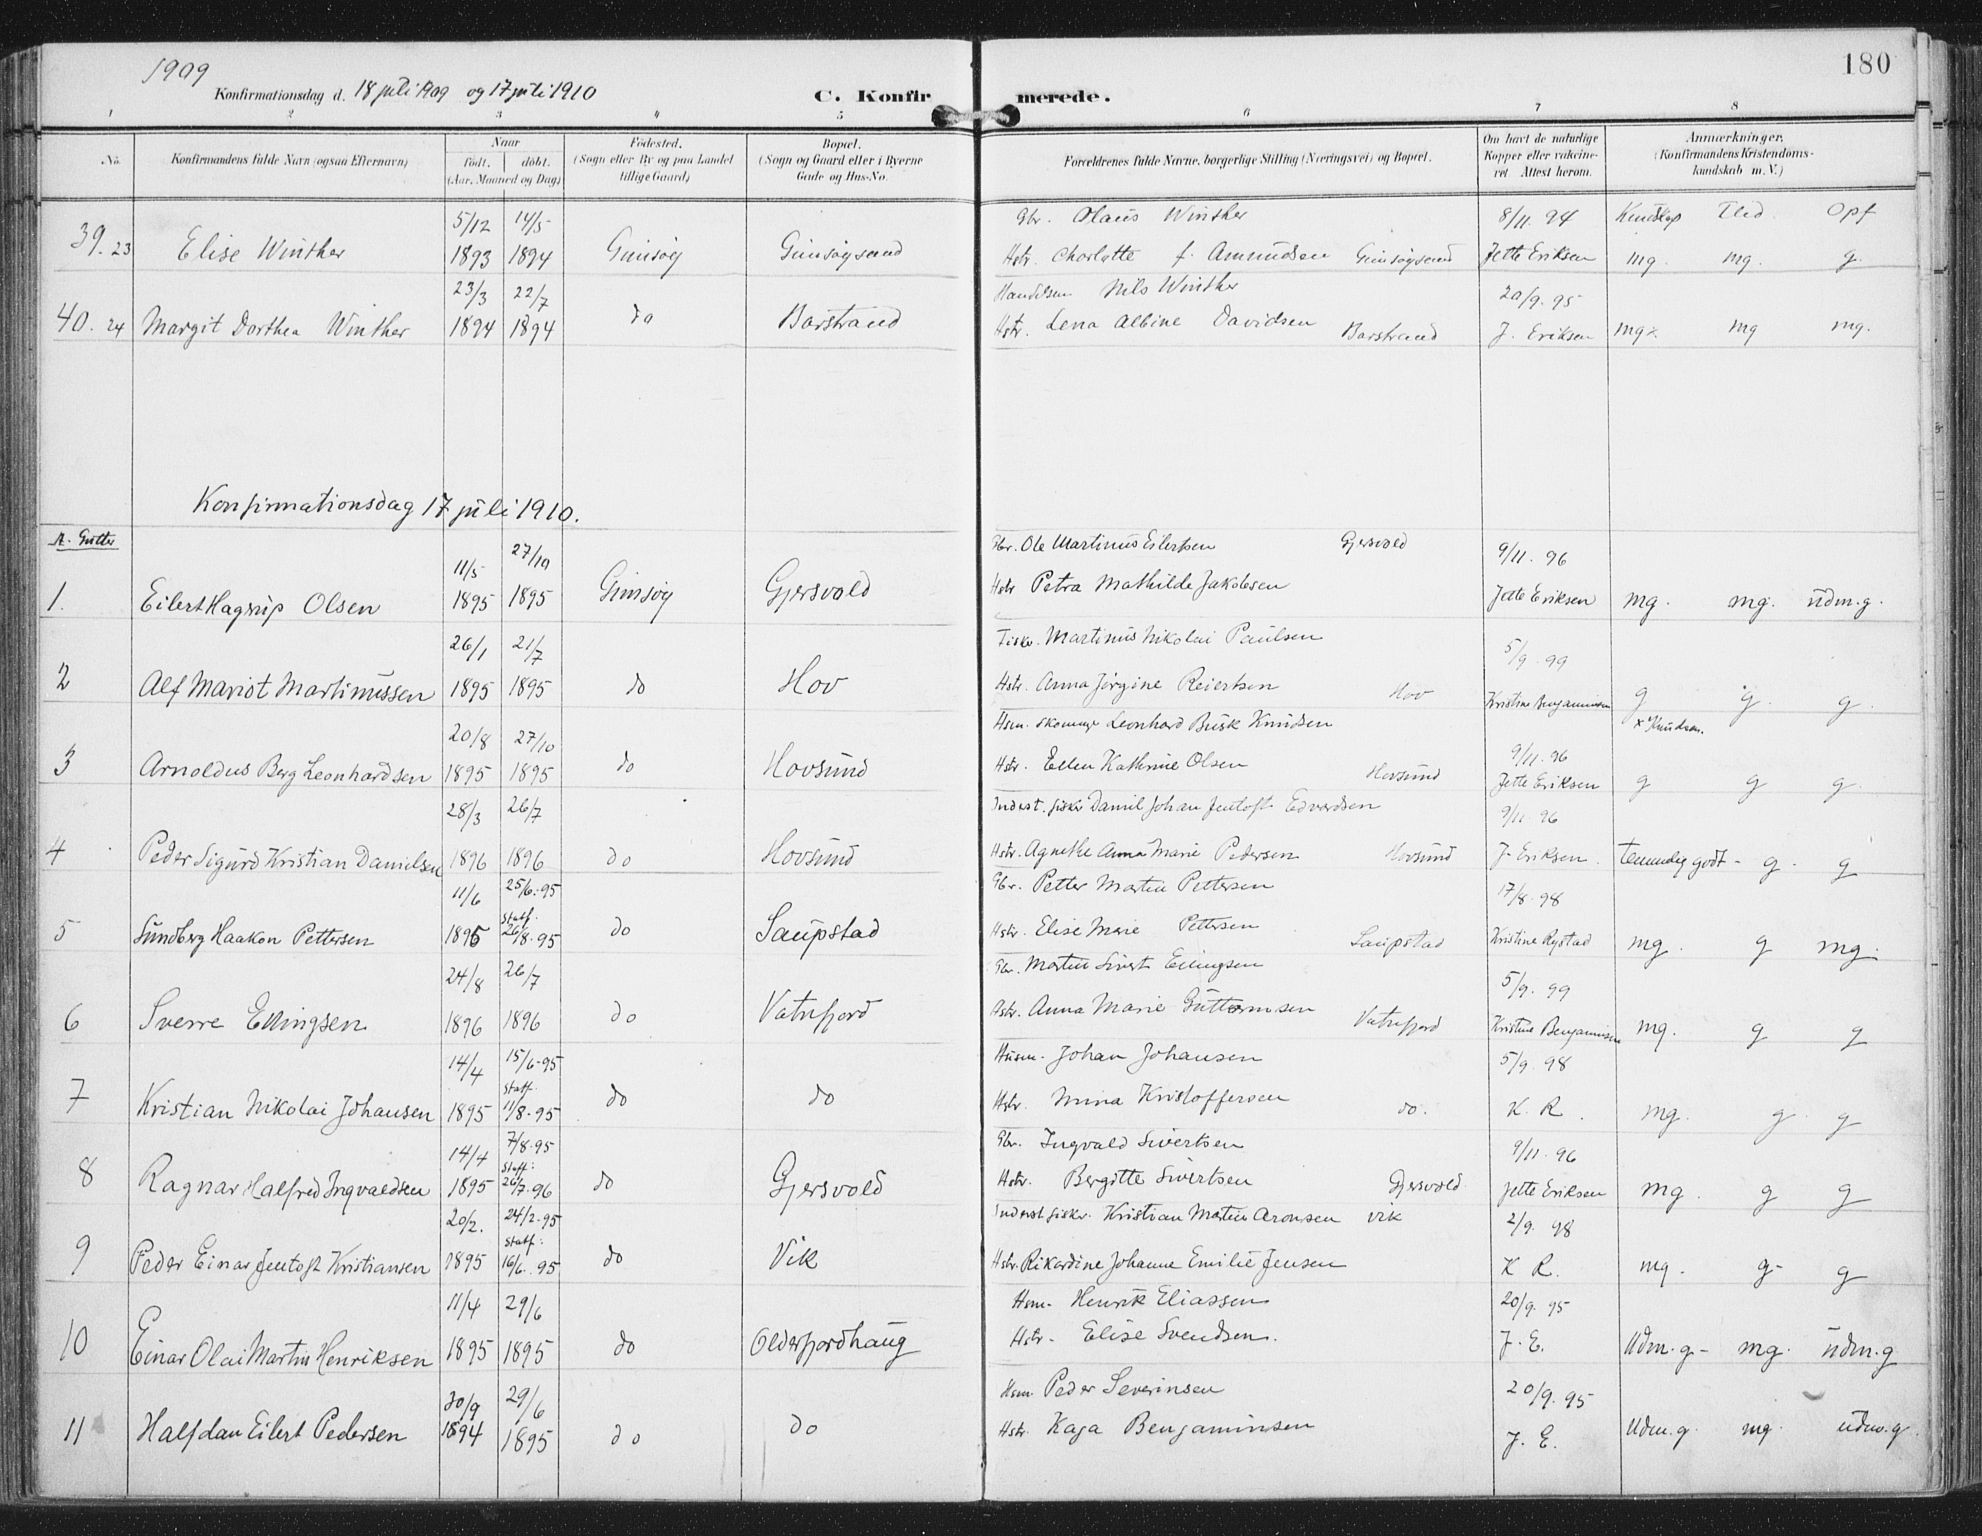 1909
180
Konfirmationsdag d. 18 juli 1909 og 17 juli 1910 C. Konfirmerede.
1 2 3 4 5 6 7 8
No. Konfirmandens fulde Navn (ogsaa Efternavn) Naar født. døbt. (Aar, Maaned og Dag) Fødested. (Sogn eller By og paa Landet tillige Gaard) Bopæl. (Sogn og Gaard eller i Byerne Gade og Hus-No. Forældrenes fulde Navne, borgerlige Stilling (Næringsvei) og Bopæl. Om havt de naturlige Kopper eller vakcineret. Attest herom. Anmærkninger. (Konfirmandens Kristendomskundskab m. V.)
5/12 14/5 Gbr. Olaus Winther 8/11. 94 Kundskap Flid. Opf
39. 23 Elise Winther 1893 1894 Gimsøy Gimsøysand Hstr. Charlotte f. Amundsen Gimsøysand Jette Eriksen mg. mg. g.
23/3 22/7 Handelsm Nils Winther 20/9. 95
40. 24 Margit Dorthea Winther 1894 1894 do Barstrand Hstr. Lena Albine Davidsen Barstrand J. Eriksen mg×. mg mg.
Konfirmationsdag 17 juli 1910.
A. Gutter
11/5 27/10 Gbr. Ole Martinus Eilertsen Gjersvold 9/11. 96
1. Eilert Hagrup Olsen 1895 1895 Gimsøy Gjersvold Hstr Petra Mathilde Jakobsen Jette Eriksen mg. mg. udm. g.
26/1 21/7 Fisker. Martinus Nikolai Paulsen 5/9. 99
2 Alf Mariot Martinussen 1895 1895 do Hov Hstr. Anna Jørgine Reiertsen Hov Kristine Benjaminsen g g. g.
20/8 27/10 Hsm. skomag Leonhard Busk Knudsen × Knudsen.
3 Arnoldus Berg Leonhardsen 1895 1895 do Hovsund Hstr. Ellen Kathrine Olsen Hovsund 9/11. 96 Jette Eriksen g g g.
28/3 26/7 Inderst. fisker Daniel Johan Jentoft Edvardsen 9/11. 96
4 Peder Sigurd Kristian Danielsen 1896 1896 do Hovsund Hstr. Agnethe Anna Marie Pedersen Hovsund J. Eriksen. temmelig godt - g. g
11/6 25/6. 95 Gbr. Petter Martin Pettersen 17/8. 98
5 Sundberg Haakon Pettersen 1895 statf. 26/8. 95 do Saupstad Hstr. Elise Marie Pettersen Saupstad Kristine Rystad mg. g mg.
24/8 26/7 Gbr. Martin Sivert Ellingsen 5/9. 99
6 Sverre Ellingsen 1896 1896 do Vatnfjord Hstr. Anna Marie Guttormsen Vatnfjord Kristine Benjaminsen mg. g g
14/4 15/6-95 Husm. Johan Johansen 5/9. 98
7 Kristian Nikolai Johansen 1895 statf. 11/8. 95 do do Hstr. Mina Kristoffersen do. K. R. mg. g. g
14/4 7/8. 95 Gbr. Ingvald Sivertsen 9/11. 96
8 Ragnar Halfred Ingvaldsen 1895 Statf: 26/7. 96 do Gjersvold Hstr. Bergitte Sivertsen Gjersvold Jette Eriksen mg. g g
20/2. 24/2. 95 Inderst fisker. Kristian Martin Aronsen Vik 2/9. 98
9 Peder Einar Jentoft Kristiansen 1895 Statf: 16/6. 95 do Vik Hstr. Rikardine Johanne Emilie Jensen K R. mg. g- g
11/4 29/6 Hsm. Henrik Eliassen 20/9. 95
10 Einar Olai Martin Henriksen 1895 1895 do Olderfjordhaug Hstr. Elise Svendsen. J. E. Udm. g- mg. udm. g
30/9 29/6 Hsm Peder Severinsen 20/9. 95
11 Halfdan Eilert Pedersen 1894 1895 do do Hstr. Kaja Benjaminsen J. E. Udm. g. mg. udm. g.